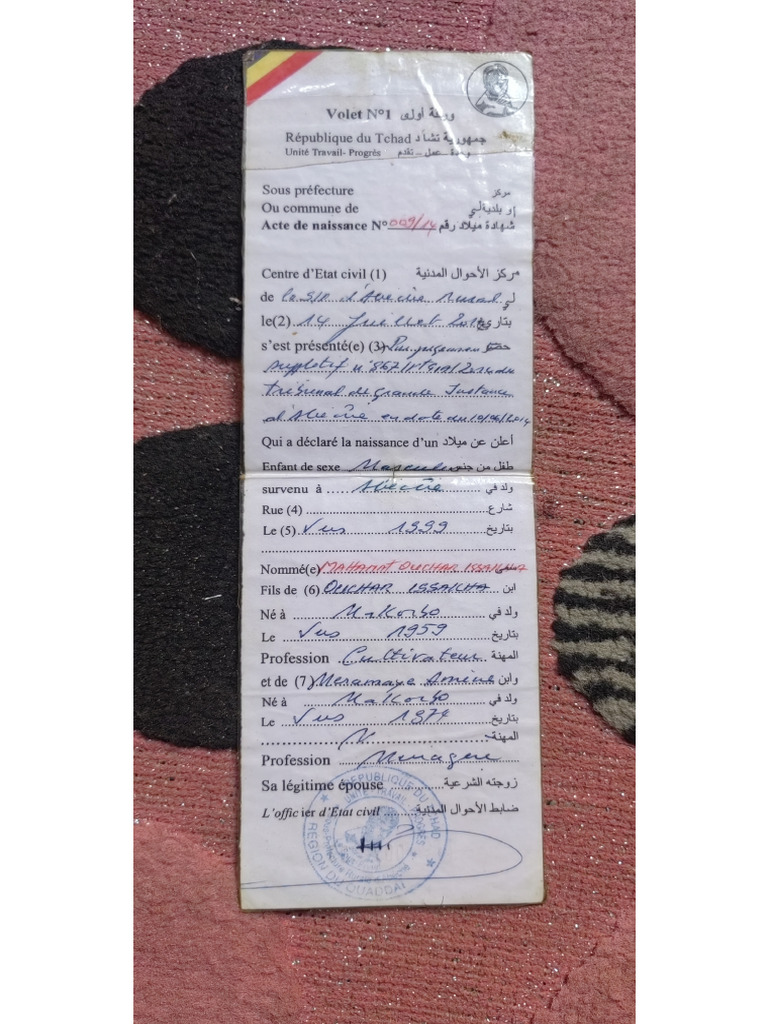 Volet N°1 ورقة أولى
République du Tchad جمهورية تشاد
Unité Travail- Progrès وحدة - عمل - تقدم
Sous préfecture مركز
Ou commune de أو بلدية لي
Acte de naissance N° 009/14 شهادة ميلاد رقم
Centre d'Etat civil (1) مركز الأحوال المدنية
de la S/P d'Abéché Rural لي
le(2) 14 Juillet بتاريخ
s'est présenté(e) (3) Par jugement حضر
suppletif n°
tribunal de grande Instance
d'Abéché en date du 10/06/2014
Qui a déclaré la naissance d'un أعلن عن ميلاد
Enfant de sexe Masculin طفل من جنس
survenu à Abéché ولد في
Rue (4) شارع
Le (5) Vers 1999 بتاريخ
Nommé(e) MAHAMAT OUCHAR ISSAKHA
Fils de (6) OUCHAR ISSAKHA ابن
Né à ولد في
Le Vers 1959 بتاريخ
Profession Cultivateur المهنة
et de (7) وابن
Né à ولد في
Le Vers 1974 بتاريخ
المهنة
Profession Menagere
Sa légitime épouse زوجته الشرعية
L'officier d'Etat civil ضابط الأحوال المدنية
REPUBLIQUE DU TCHAD
UNITE TRAVAIL PROGRES
REGION DU OUADDAI